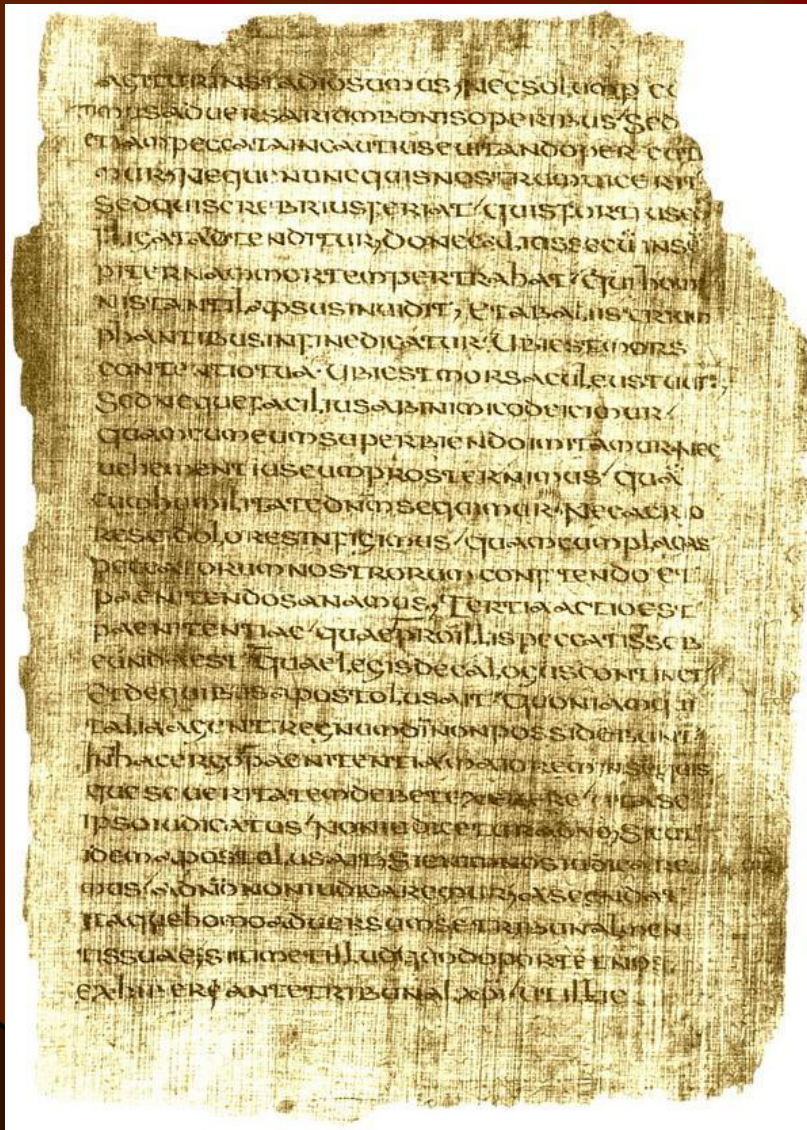 AGITURINSTADIOSUMUS,NECSOLUMP CU
TIMUSADUERSARIUMBONISOPERIBUS'SED
ETIAMPECCATAINCAUTIUSEUITANDOPER CUTI
MUR,NEQUENUNCQUISNOSTRUMUICERIT
SEDQUISCREBRIUSFERIAT'QUISFORTIUSCO
FLIGATADTENDITUR,DONECALIOSSECŪINSĒ
PITERNAMMORTEMPERTRAHAT'QUIHOMI
NISTANTILAPSUSINUIDIT,ETABALIISTRIUM
PHANTIBUSINFINEDICATUR'UBIESTMORS
CONTENTIOTUA·UBIESTMORSACULEUSTUUS,
SEDNEQUEFACILIUSABINIMICODEICIMUR'
QUAMCUMEUMSUPERBIENDOIMITAMUR·NEC
UEHEMENTIUSEUMPROSTERNIMUS'QUĀ
CUMHUMILITATEDNMSEQUIMUR·NECACRIO
RESEIDOLORESINFIGIMUS'QUAMCUMPLAGAS
PECCATORUMNOSTRORUMCONFITENDOET
PAENITENDOSANAMUS,TERTIAACTIOEST
PAENITENTIAE'QUAEPROILLISPECCATISSUB
EUNDAEST'QUAELEGISDECALOGUSCONTINET
ETDEQUIBUSAPOSTOLUSAIT'QUONIAMQUI
TALIAAGUNTREGNUMDĪNONPOSSIDEBUNT
INHACERGOPAENITENTIAMAIOREMINSEQUIS
QUESEUERITATEMDEBETEXERERE'UTASE
IPSOIUDICATUS'NONIUDICETURADNO,SICUT
IDEMAPOSTOLUSAIT,SIENIMNOSIUDICARE
MUS'ADNONONIUDICAREMUR,ASCENDAT
ITAQUEHOMOADUERSUMSETRIBUNALMEN
TISSUAE,SITIMETILLUDQUODOPORTETNOS
EXHIBERIANTETRIBUNALXPI'UTILLIC